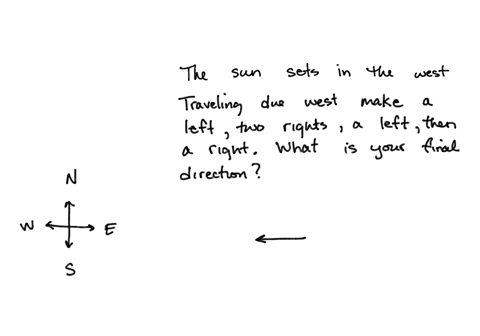 The sun sets in the west
Traveling due west make a
left, two rights, a left, then
a right. What is your final
direction?
N
W E
S